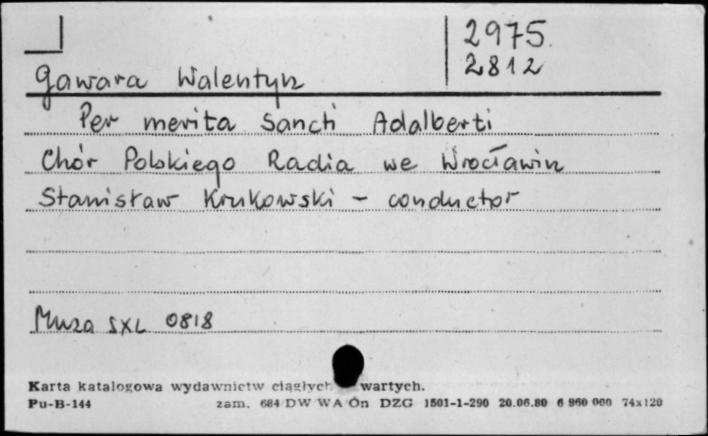 2975
2812
Gawara Walentyn
Per merita Sancti Adalberti
Chór Polskiego Radia we Wrocławiu
Stanisław Krukowski - conductor
Muza SXL 0818
Karta katalogowa wydawnictw ciągłych wartych.
Pu-B-144 zam. 684 DW WA On DZG 1501-1-290 20.06.80 6 960 000 74x120